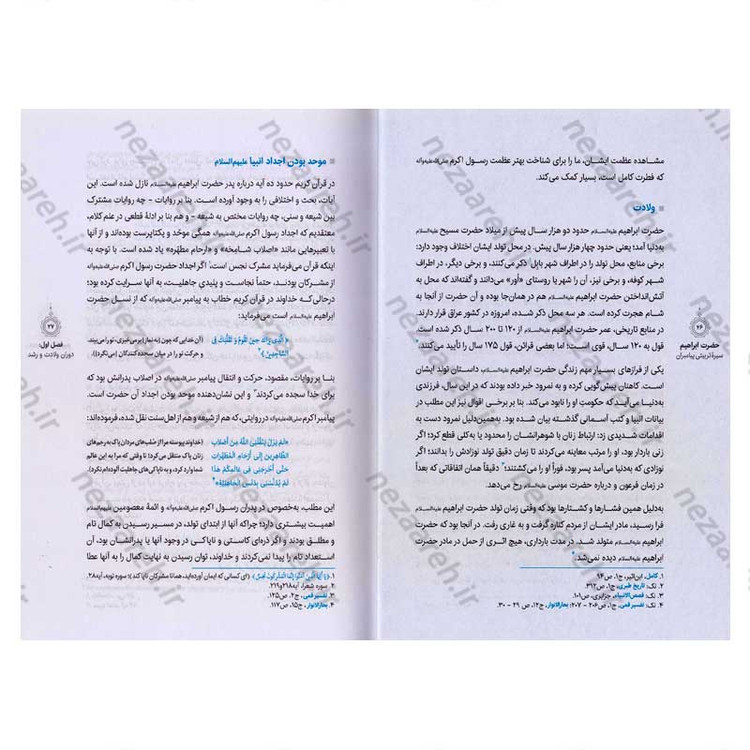 مشاهده عظمت ایشان، ما را برای شناخت بهتر عظمت رسول اکرم صلی‌الله‌علیه‌وآله
که فطرت کامل است، بسیار کمک می‌کند.
ولادت
حضرت ابراهیم علیه‌السلام حدود دو هزار سال پیش از میلاد حضرت مسیح علیه‌السلام
به‌دنیا آمد؛ یعنی حدود چهار هزار سال پیش. در محل تولد ایشان اختلاف وجود دارد:
برخی منابع، محل تولد را در اطراف شهر بابِل ذکر می‌کنند، و برخی دیگر، در اطراف
شهر کوفه، و برخی نیز، آن را شهر یا روستای «اُور» می‌دانند و گفته‌اند که محل به
آتش‌انداختن ابراهیم علیه‌السلام هم در همان‌جا بوده و آن حضرت از آنجا به
شام هجرت کرده است. هر سه محل ذکر شده، امروزه در کشور عراق قرار دارند.
در منابع تاریخی، عمر حضرت ابراهیم علیه‌السلام از ۱۲۰ تا ۲۰۰ سال ذکر شده است.
قول به ۱۲۰ سال، قوی است؛ اما بعضی قرائن، قول ۱۷۵ سال را تأیید می‌کنند.
یکی از فرازهای بسیار مهم زندگی حضرت ابراهیم علیه‌السلام داستان تولد ایشان
است. کاهنان پیش‌گویی کرده و به نمرود خبر داده بودند که در این سال، فرزندی
به‌دنیا می‌آید که حکومتِ او را نابود می‌کند. بنا بر برخی اقوال نیز این مطلب در
بیانات انبیا و کتب آسمانی گذشته بیان شده بود. به‌همین‌دلیل نمرود دست به
اقدامات شدیدی زد: ارتباط زنان با شوهرانشان را محدود یا به‌کلی قطع کرد؛ اگر
زنی باردار بود، او را مرتب معاینه می‌کردند تا زمان دقیق تولد نوزادش را بدانند؛ اگر
نوزادی که به‌دنیا می‌آمد پسر بود، فوراً او را می‌کشتند؛ دقیقاً همان اتفاقاتی که بعداً
در زمان فرعون و درباره حضرت موسی علیه‌السلام رخ می‌دهد.
به‌دلیل همین فشارها و کشتارها بود که وقتی زمان تولد حضرت ابراهیم علیه‌السلام
فرا رسید، مادر ایشان از مردم کناره گرفت و به غاری رفت. در آنجا بود که حضرت
ابراهیم علیه‌السلام متولد شد. در مدت بارداری، هیچ اثری از حمل در مادر حضرت
ابراهیم علیه‌السلام دیده نمی‌شد.
۱. کامل، ابن‌اثیر، ج۱، ص۹۴.
۲. نک: تاریخ طبری، ج۱، ص۳۱۲.
۳. نک: قصص‌الانبیاء، جزایری، ص۱۰۱.
۴. نک: تفسیر قمی، ج۱، ص۲۰۶ - ۲۰۷؛ بحارالانوار، ج۱۲، ص ۲۹ - ۳۰.
۲۶
حضرت ابراهیم
سیرهٔ تربیتی پیامبران
موحد بودن اجداد انبیا علیهم‌السلام
در قرآن کریم حدود ده آیه درباره پدر حضرت ابراهیم علیه‌السلام نازل شده است. این
آیات، بحث و اختلافی را به وجود آورده است. بنا بر روایات – چه روایات مشترک
بین شیعه و سنی، چه روایات مختص به شیعه – و هم بنا بر ادلهٔ قطعی در علم کلام،
معتقدیم که اجداد حضرت رسول اکرم صلی‌الله‌علیه‌وآله همگی موحّد و یکتاپرست بوده‌اند و از آنها
با تعبیرهایی مانند «اصلاب شامخه» و «ارحام مطهّره» یاد شده است. با توجه به
اینکه قرآن می‌فرماید مشرک نجس است، اگر اجداد حضرت رسول اکرم صلی‌الله‌علیه‌وآله
از مشرکان بودند، حتماً نجاست و پلیدی جاهلیت، به آنها سرایت کرده بود؛
درحالی‌که خداوند در قرآن کریم خطاب به پیامبر صلی‌الله‌علیه‌وآله که از نسل حضرت
ابراهیم علیه‌السلام است می‌فرماید:
﴿الَّذِي يَرَاكَ حِينَ تَقُومُ وَ تَقَلُّبَكَ فِي
السَّاجِدِينَ﴾
(آن خدایی که چون [به نماز] برمی‌خیزی، تو را می‌بیند
و حرکت تو را در میان سجده‌کنندگان [می‌نگرد]).
بنا بر روایات، مقصود، حرکت و انتقال پیامبر صلی‌الله‌علیه‌وآله در اصلاب پدرانش بود که
برای خدا سجده می‌کردند و این نشان‌دهنده موحد بودن اجداد آن حضرت است.
پیامبر اکرم صلی‌الله‌علیه‌وآله در روایتی، که هم از شیعه و هم از اهل سنت نقل شده، فرموده‌اند:
«لَمْ يَزَلْ يَنْقُلُنِي اللَّهُ مِنْ أَصْلَابِ
الطَّاهِرِينَ إِلَى أَرْحَامِ الْمُطَهَّرَاتِ
حَتَّى أَخْرَجَنِي فِي عَالَمِكُمْ هَذَا
لَمْ يُدَنِّسْنِي بِدَنَسِ الْجَاهِلِيَّةِ»
(خداوند پیوسته مرا از صُلب‌های مردان پاک به رحِم‌های
زنان پاک منتقل می‌کرد؛ تا وقتی که مرا به این عالم
شما وارد کرد، و به ناپاکی‌های جاهلیت آلوده‌ام نکرد).
این مطلب، به‌خصوص در پدران رسول اکرم صلی‌الله‌علیه‌وآله و ائمهٔ معصومین علیهم‌السلام
اهمیت بیشتری دارد؛ چراکه آنها از ابتدای تولد، در مسیر رسیدن به کمال تام
و مطلق بودند و اگر ذره‌ای کاستی و ناپاکی در وجود آنها یا پدرانشان بود، آن
استعداد تام را پیدا نمی‌کردند و خداوند، توان رسیدن به نهایت کمال را به آنها عطا
۱. ﴿يَا أَيُّهَا الَّذِينَ آمَنُوا إِنَّمَا الْمُشْرِكُونَ نَجَسٌ﴾ (ای کسانی که ایمان آورده‌اید، همانا مشرکان ناپاک‌اند)؛ سوره توبه، آیه۲۸.
۲. سوره شعراء، آیه۲۱۸و۲۱۹.
۳. تفسیر قمی، ج۲، ص۱۲۵.
۴. بحارالانوار، ج۱۵، ص۱۱۷.
۲۷
فصل اول:
دوران ولادت و رشد
nezaareh.ir